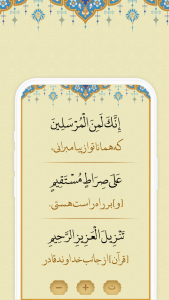 إِنَّكَ لَمِنَ الْمُرْسَلِينَ
که همانا تو از پیامبرانی،
عَلَىٰ صِرَاطٍ مُسْتَقِيمٍ
(و) بر راه راست هستی.
تَنْزِيلَ الْعَزِيزِ الرَّحِيمِ
(قرآن) از جانب خداوند قادر